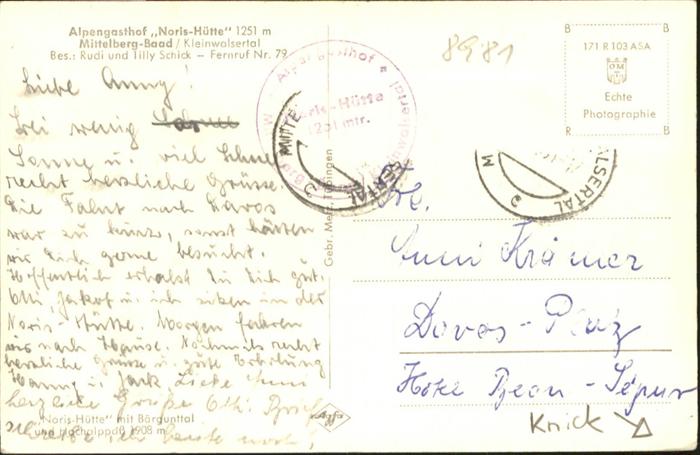 Alpengasthof „Noris-Hütte" 1251 m
Mittelberg-Baad / Kleinwalsertal
Bes.: Rudi und Tilly Schick – Fernruf Nr. 79
Liebe Anny!
Bei wenig
Sonne u. viel Schnee
recht herzliche Grüsse.
Die Fahrt nach Davos
war zu kurz, sonst hätten
wir Dich gerne besucht.
Hoffentlich erholst Du Dich gut.
Otti, Jakob u. ich sitzen in der
Noris-Hütte. Morgen fahren
wir nach Hause. Nochmals recht
herzliche Grüsse u. gute Erholung
Hanny u. Jack Liebe Anni
herzliche Grüße Otti
schreibe ich heute noch!
„Noris-Hütte" mit Bärgunttal
und Hochalppaß 1908 m
Alpengasthof
Noris-Hütte
1251 mtr.
MITTE
SERTAL
Gebr. Metz, Tübingen
8981
B B
171 R 103 ASA
Echte
Photographie
R B
M
ALSERTAL
Frl.
Anni Krämer
Davos-Platz
Hotel Beau-Séjour
Knick